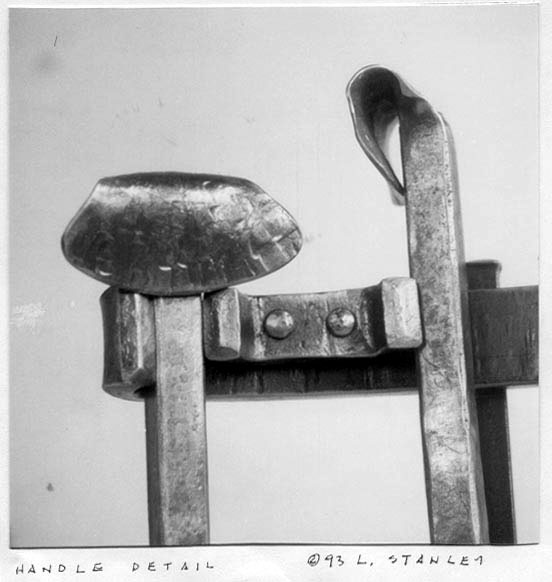 HANDLE DETAIL ©93 L. STANLEY